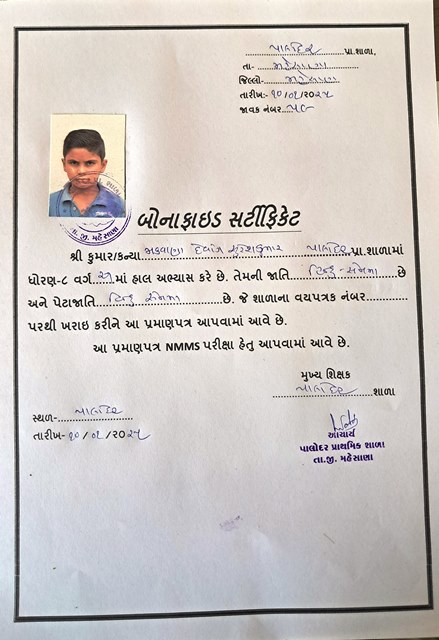 પાલોદર પ્રા.શાળા,
તા- મહેસાણા
જિલ્લો- મહેસાણા
તારીખ:- ૧૦/૦૧/૨૦૨૫
જાવક નંબર
તા.જી. મહેસાણા
બોનાફાઇડ સર્ટીફિકેટ
શ્રી કુમાર/કન્યા પાલોદર પ્રા.શાળામાં
ધોરણ-૮ વર્ગ માં હાલ અભ્યાસ કરે છે. તેમની જાતિ હિન્દુ- છે
અને પેટાજાતિ હિન્દુ છે. જે શાળાના વયપત્રક નંબર
પરથી ખરાઇ કરીને આ પ્રમાણપત્ર આપવામાં આવે છે.
આ પ્રમાણપત્ર NMMS પરીક્ષા હેતુ આપવામાં આવે છે.
મુખ્ય શિક્ષક
પાલોદર શાળા
સ્થળ- પાલોદર
તારીખ- ૧૦/૦૧/૨૦૨૫
આચાર્ય
પાલોદર પ્રાથમિક શાળા
તા.જી. મહેસાણા